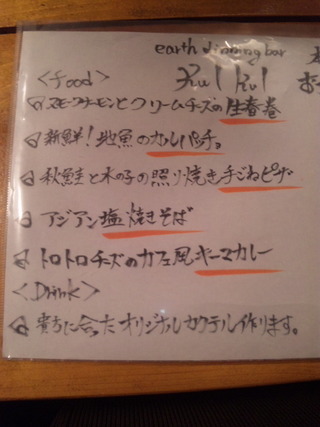 earth dinning bar
<food>
スモークサーモンとクリームチーズの生春巻
新鮮!地魚のカルパッチョ。
秋鮭と木の子の照り焼き手ごねピザ
アジアン塩焼きそば
トロトロチーズのカフェ風キーマカレー
<Drink>
貴方に合ったオリジナルカクテル作ります。